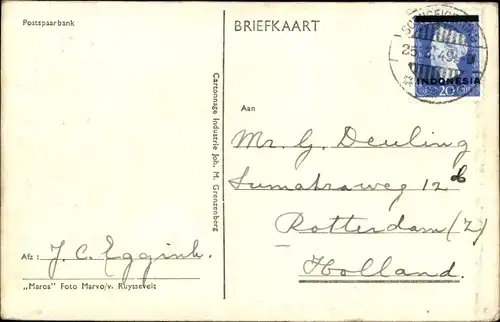 Postspaarbank
BRIEFKAART
INDONESIA
20
Cartonnage Industrie Joh. M. Grenzenberg
Aan
Mr. G. Deuling
Sumatraweg 12b
Rotterdam (Z)
Holland.
Afz: J. C. Eggink.
„Maros” Foto Marvo/v. Ruyssevelt